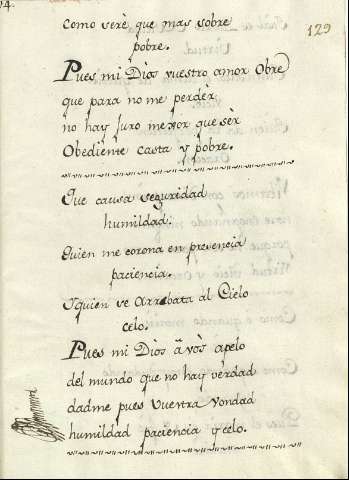 74.
129
como verè que mas sobre
pobre.
Pues mi Dios vuestro amor Obre
que para no me perdèr
no hay Juro mejor que sèr
Obediente casta y pobre.
Que causa seguridad
humildad.
Quien me corona en presencia
paciencia.
Y quien se Arrebata al Cielo
celo.
Pues mi Dios a vòs apelo
del mundo que no hay vèrdad
dadme pues Vuestra Vondad
humildad paciencia y celo.